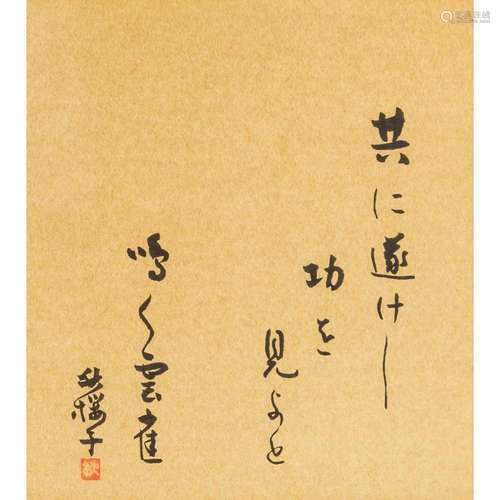 共に遂げし
功を
見よと
鳴く雲雀
秋桜子